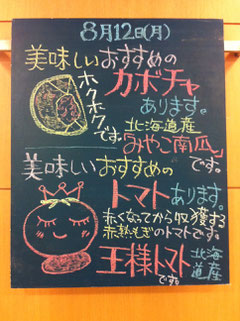 8月12日(月)
美味しいおすすめの
カボチャ
あります。
ホクホクです。
北海道産
「みやこ南瓜」
です。
美味しいおすすめの
トマトあります。
赤くなってから収獲する
赤熟もぎのトマトです。
王様トマト
北海道産
です。